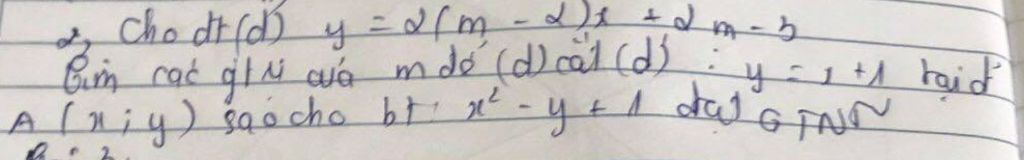 2, Cho dt (d) y = 2(m - 2)x + 2m - 3
Tìm các gtri của m để (d) cắt (d') : y = x + 1 tại đ'
A (x ; y) sao cho bt : x² - y + 1 đạt GTNN